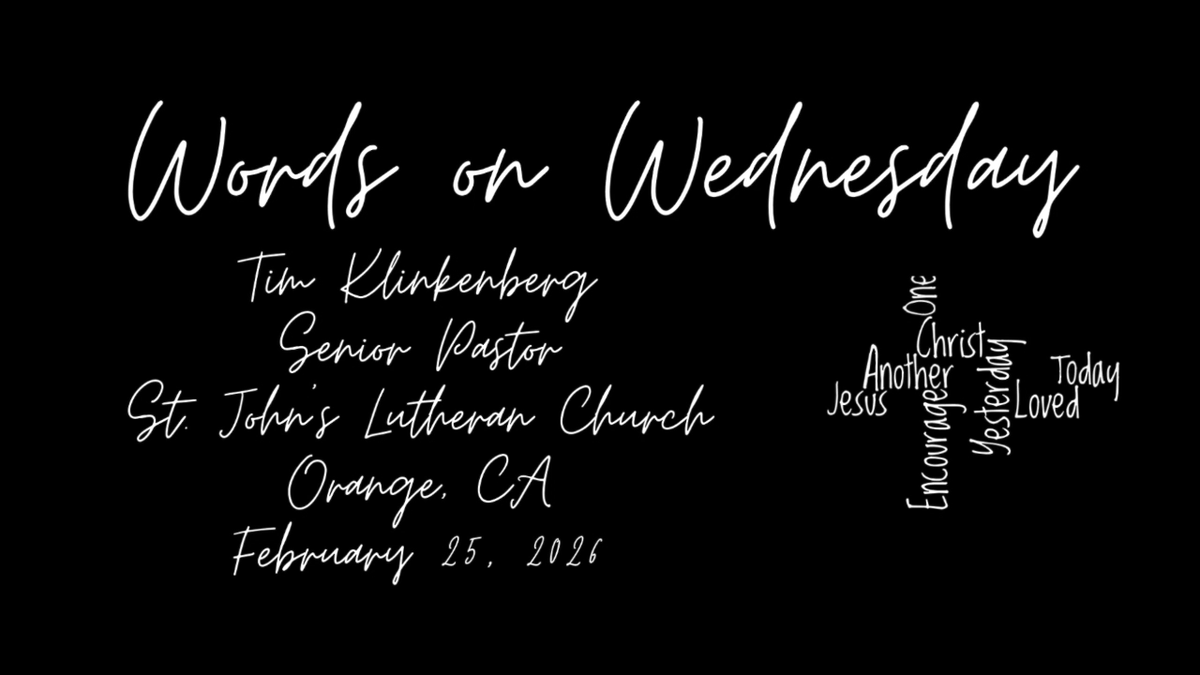 Words on Wednesday
Tim Klinkenberg
Senior Pastor
St. John's Lutheran Church
Orange, CA
February 25, 2026
One
Christ
Another
Jesus
Encourage
Yesterday
Loved
Today